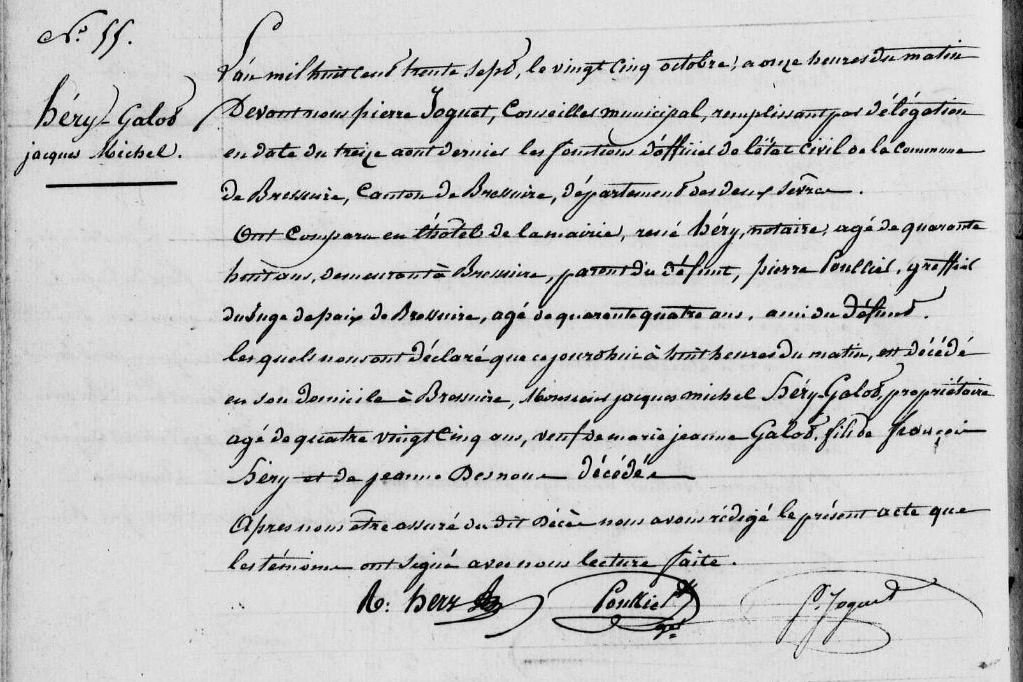 N.º 55.
héry-Galot
jacques Michel.
L'an mil huit cent trente sept, le vingt cinq octobre, a onze heures du matin
Devant nous pierre Joguet, Conseiller municipal, remplissant par délégation
en date du treize aout dernier les fonctions d'officier de l'état Civil de la Commune
de Bressuire, Canton de Bressuire, département des deux sèvres.
Ont Comparu en l'hotel de la mairie, rené héry, notaire, agé de quarante
huit ans, demeurant à Bressuire, parent du défunt, pierre Poulliet, greffier
du Juge de paix de Bressuire, agé de quarente quatre ans, ami du défunt.
les quels nous ont déclaré que ce jourd'hui à huit heures du matin, est décédé
en son domicile à Bressuire, Monsieur jacques michel héry-Galot, propriétaire
agé de quatre vingt Cinq ans, veuf de marie jeanne Galot, fils de françois
héry et de jeanne Desnoue décédés
Apres nous être assuré du dit décès nous avons rédigé le présent acte que
les témoins ont signé avec nous lecture faite.
R: héry Poulliet P. Joguet